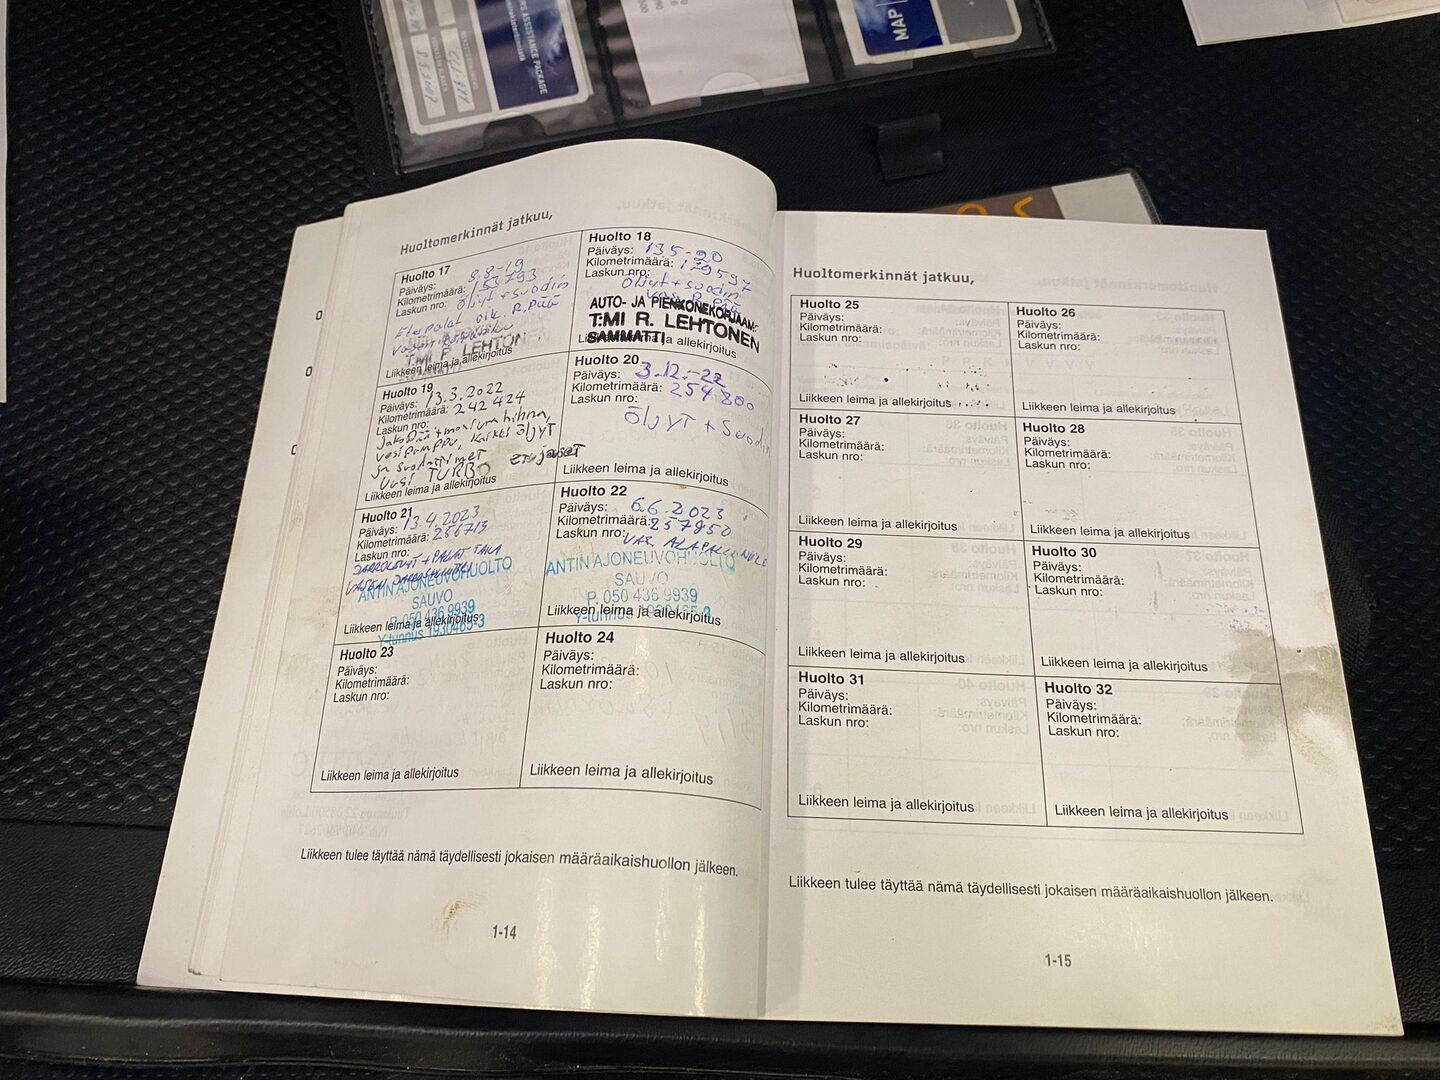 ASSISTANCE PACKAGE
MAP
Huoltomerkinnät jatkuu,
Huolto 17
Päiväys: 8.8-19
Kilometrimäärä: 153793
Laskun nro: Öljyt + suodin
Etupalat oik. R.Pää
T:MI R. LEHTONEN
Liikkeen leima ja allekirjoitus
Huolto 18
Päiväys: 13.5-20
Kilometrimäärä: 179597
Laskun nro:
Öljyt + suodin
vas. R. Pää
AUTO- JA PIENKONEKORJAAM
T:MI R. LEHTONEN
SAMMATTI
Liikkeen leima ja allekirjoitus
Huolto 19
Päiväys: 13.3.2022
Kilometrimäärä: 242424
Laskun nro:
Jakopää + moniurahihna,
vesipumppu, kaikki öljyt
ja suodattimet
uusi TURBO etujouset
Liikkeen leima ja allekirjoitus
Huolto 20
Päiväys: 3.12.-22
Kilometrimäärä: 254800
Laskun nro:
öljyt + suodin
Liikkeen leima ja allekirjoitus
Huolto 21
Päiväys: 13.4.2023
Kilometrimäärä: 256713
Laskun nro:
JARRULEVYT + PALAT TAKA
ANTIN AJONEUVOHUOLTO
SAUVO
P. 050 436 9939
Y-tunnus 1930465-3
Liikkeen leima ja allekirjoitus
Huolto 22
Päiväys: 6.6.2023
Kilometrimäärä: 257950
Laskun nro: VAS. ALAPALLONIVEL
ANTIN AJONEUVOHUOLTO
SAUVO
P. 050 436 9939
Y-tunnus 1930465-3
Liikkeen leima ja allekirjoitus
Huolto 23
Päiväys:
Kilometrimäärä:
Laskun nro:
Liikkeen leima ja allekirjoitus
Huolto 24
Päiväys:
Kilometrimäärä:
Laskun nro:
Liikkeen leima ja allekirjoitus
Liikkeen tulee täyttää nämä täydellisesti jokaisen määräaikaishuollon jälkeen.
1-14
Huoltomerkinnät jatkuu,
Huolto 25
Päiväys:
Kilometrimäärä:
Laskun nro:
Liikkeen leima ja allekirjoitus
Huolto 26
Päiväys:
Kilometrimäärä:
Laskun nro:
Liikkeen leima ja allekirjoitus
Huolto 27
Päiväys:
Kilometrimäärä:
Laskun nro:
Liikkeen leima ja allekirjoitus
Huolto 28
Päiväys:
Kilometrimäärä:
Laskun nro:
Liikkeen leima ja allekirjoitus
Huolto 29
Päiväys:
Kilometrimäärä:
Laskun nro:
Liikkeen leima ja allekirjoitus
Huolto 30
Päiväys:
Kilometrimäärä:
Laskun nro:
Liikkeen leima ja allekirjoitus
Huolto 31
Päiväys:
Kilometrimäärä:
Laskun nro:
Liikkeen leima ja allekirjoitus
Huolto 32
Päiväys:
Kilometrimäärä:
Laskun nro:
Liikkeen leima ja allekirjoitus
Liikkeen tulee täyttää nämä täydellisesti jokaisen määräaikaishuollon jälkeen.
1-15